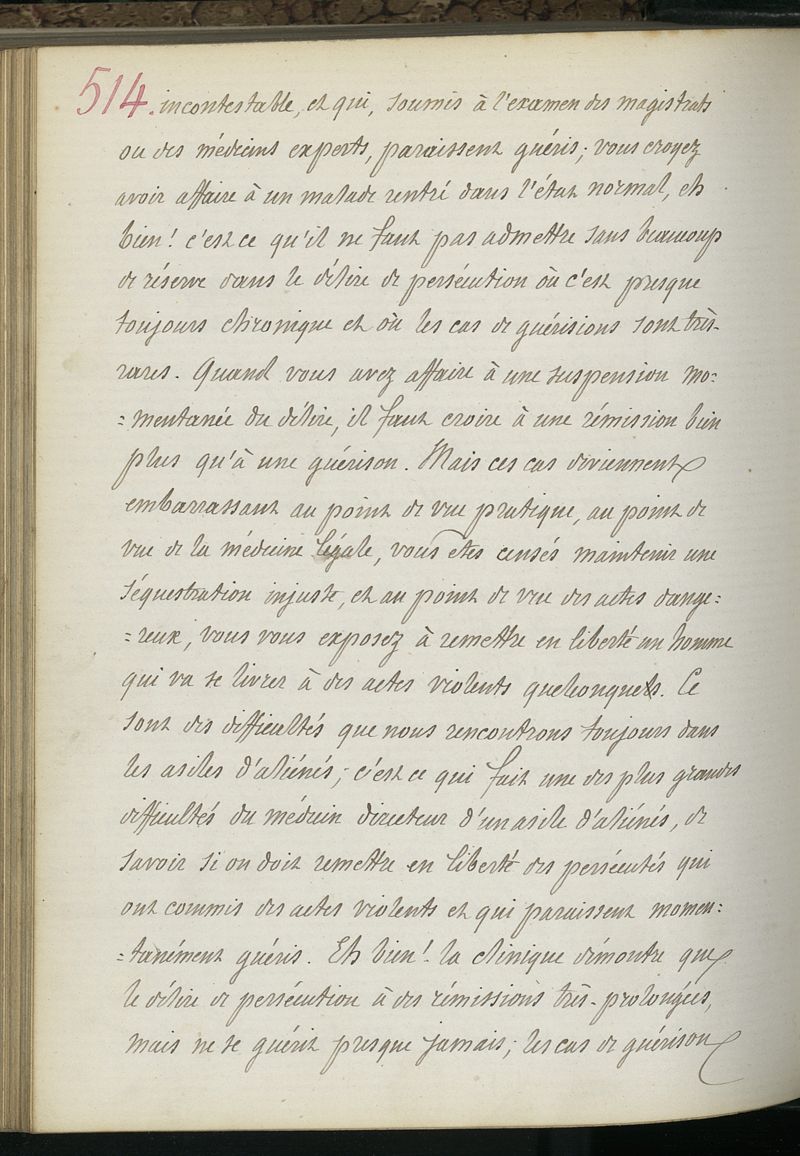 514. incontestable, et qui, soumis à l'examen des magistrats
ou des médecins experts, paraissent guéris; vous croyez
avoir affaire à un malade rentré dans l'état normal, eh
bien! c'est ce qu'il ne faut pas admettre sans beaucoup
de réserve dans le délire de persécution où c'est presque
toujours chronique et où les cas de guérisions sont très-
rares. Quand vous avez affaire à une suspension mo=
=mentanée du délire, il faut croire à une rémission bien
plus qu'à une guérison. Mais ces cas deviennent
embarrassant au point de vue pratique, au point de
vue de la médecine légale, vous êtes censés maintenir une
séquestration injuste, et au point de vue des actes dange=
=reux, vous vous exposez à remettre en liberté un homme
qui va se livrer à des actes violents quelconques. Ce
sont des difficultés que nous rencontrons toujours dans
les asiles d'aliénés; c'est ce qui fait une des plus grandes
difficultés du médecin directeur d'un asile d'aliénés, de
savoir si on doit remettre en liberté des persécutés qui
ont commis des actes violents et qui paraissent momen=
=tanément guéris. Eh bien! la clinique démontre que
le délire de persécution à des rémissions très-prolongées,
mais ne se guérit presque jamais; les cas de guérison